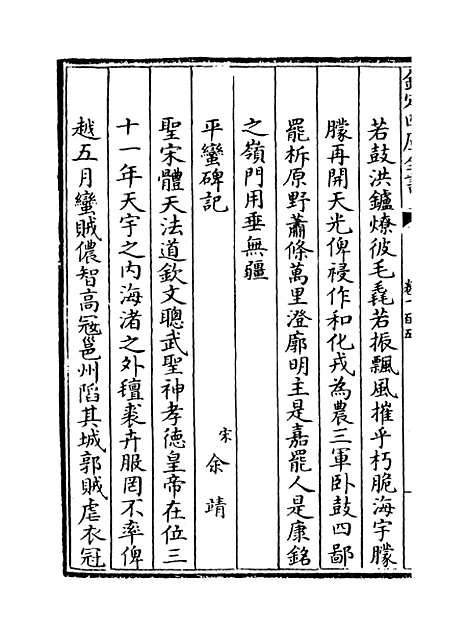 欽定四庫全書
卷一百五
若鼓洪鑪燎彼毛毳若振飄風摧乎朽脆海宇朦
朦再開天光俾祲作和化戎為農三軍卧鼓四鄙
罷柝原野蕭條萬里澄廓明主是嘉罷人是康銘
之嶺門用垂無疆
平蠻碑記
宋余靖
聖宋體天法道欽文聰武聖神孝德皇帝在位三
十一年天宇之内海渚之外氊裘卉服罔不率俾
越五月蠻賊儂智高冦邕州陷其城郭賊虐衣冠